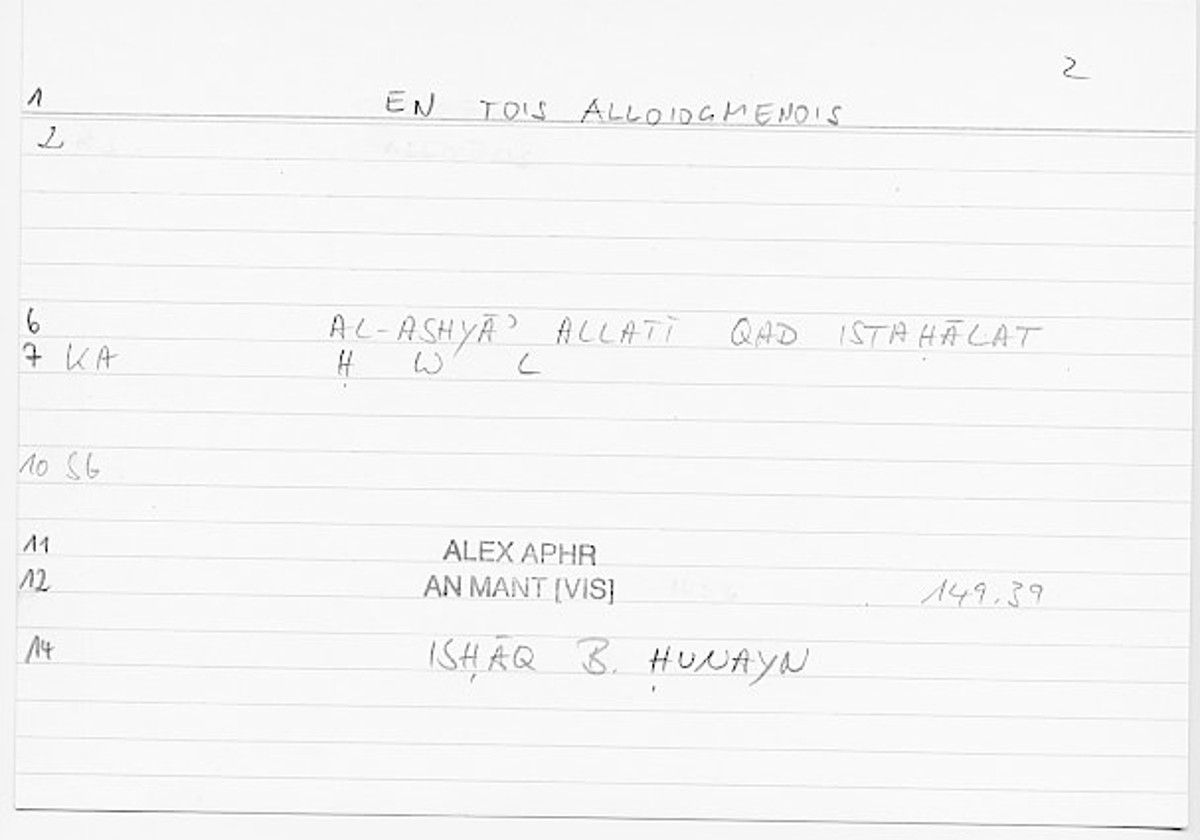 2
1 EN TOIS ALLOIOGMENOIS
2
6 AL-ASHYĀʾ ALLATĪ QAD ISTAḤĀLAT
7 KA Ḥ W L
10 SG
11 ALEX APHR
12 AN MANT [VIS] 149.39
14 ISḤĀQ B. ḤUNAYN